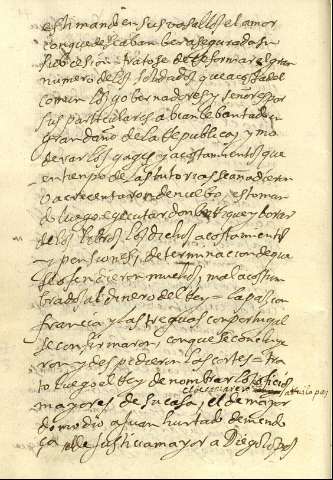 estimando en sus vasallos el amor
con que deseaban ver asegurada su
subcesion = tratose de Reformar el gran
numero de los soldados que a costa del
comun los gobernadores y señores por
sus particulares abian lebantado en
gran daño de la Republica y mo
derar los gages y acostamientos que
en tienpo de las tutorias se anadieron
o acrecentaron de nuebo = esto man
do luego executar don Enrique y borrar
de los libros los dichos acostamientos
y pensiones, determinacion de que
se ofendieron muchos, mal acostum
brados al dinero del Rey = la paz con
francia y las treguas con portugal
se confirmaron, con que se concluye
ron y despidieron las cortes = tra
to luego el Rey de nombrar los oficios
mayores de su casa, el de mayor
domo dio a Juan hurtado de mendo
ça de Justicia mayor a Diego lopez